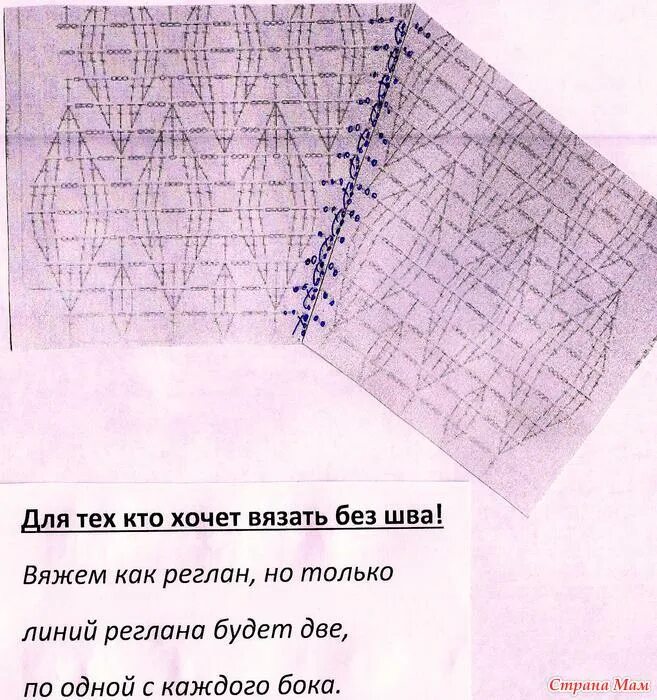 Для тех кто хочет вязать без шва!
Вяжем как реглан, но только
линий реглана будет две,
по одной с каждого бока.
Страна Мам